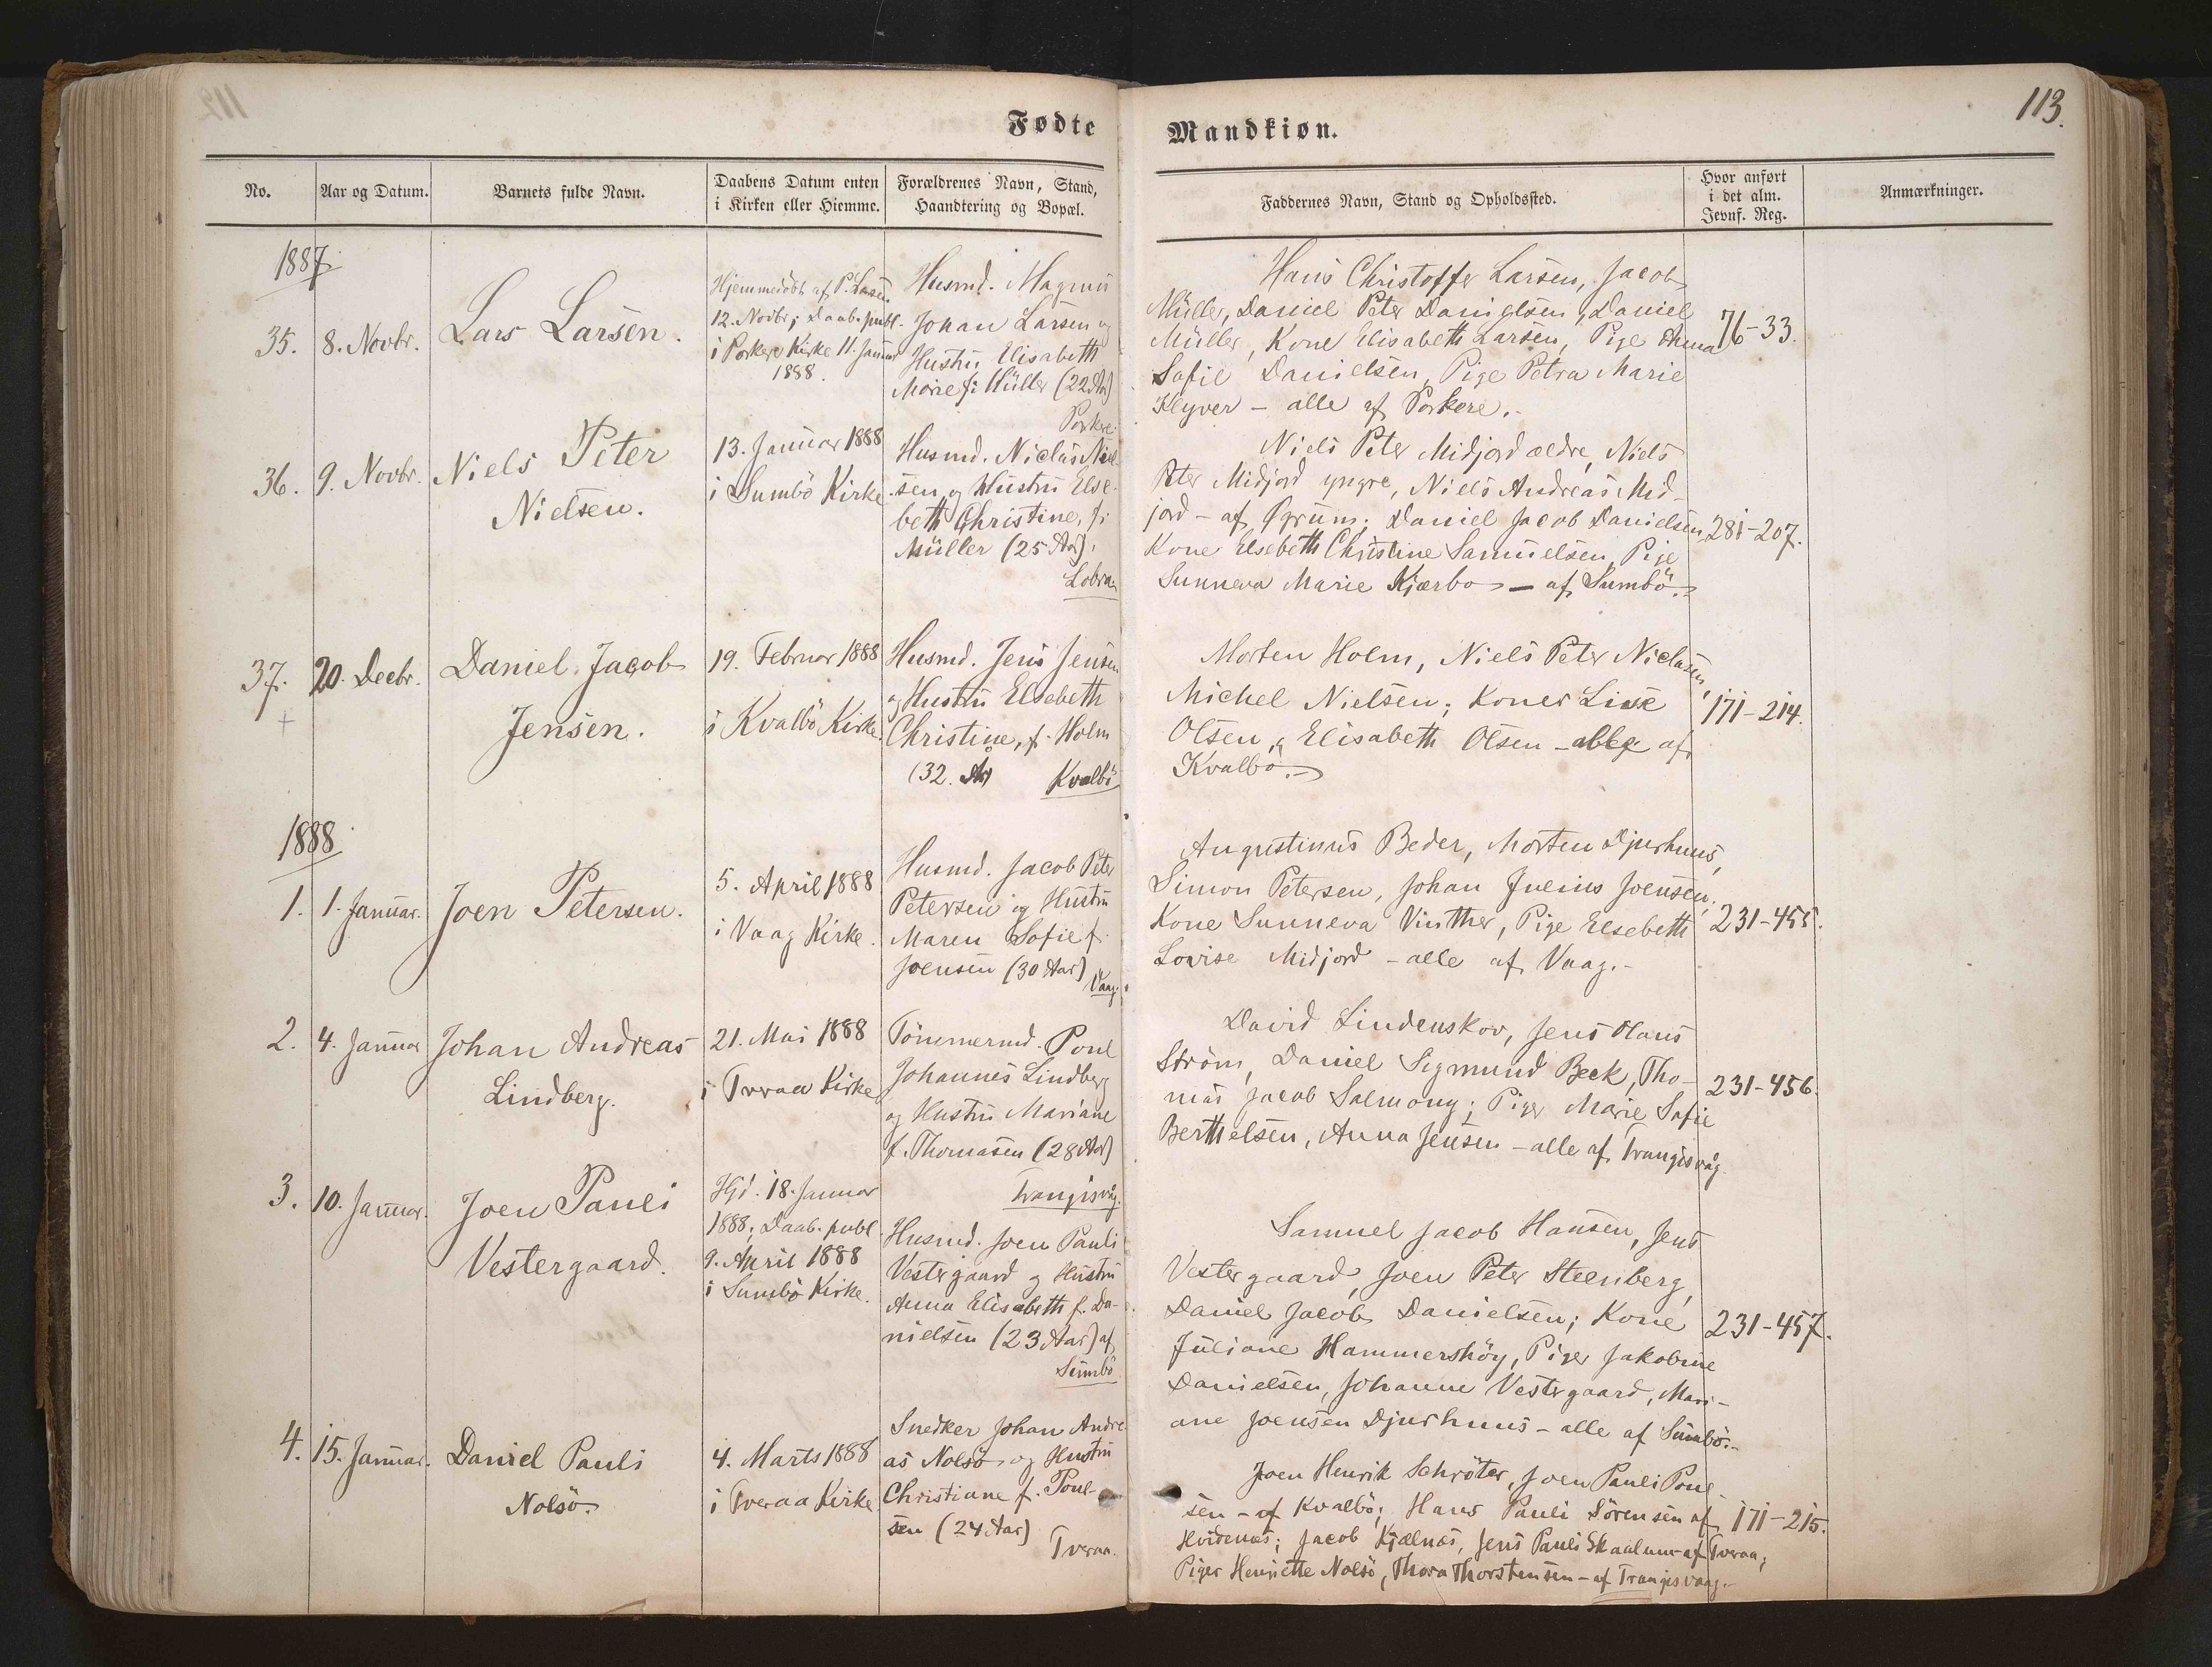 Fødte
No.
Aar og Datum.
Barnets fulde Navn.
Daabens Datum enten
i Kirken eller Hiemme.
Forældrenes Navn, Stand,
Haandtering og Bopæl.
1887.
35.
8. Novbr.
Lars Larsen.
Hjemmedøbt af P. Larsen
12. Novbr; Daab. publ.
i Porkere Kirke 11. Januar
1888.
Husmd. Magnus
Johan Larsen og
Hustru Elisabeth
Marie f: Müller (22 Aar)
Porkere.
36.
9. Novbr.
Niels Peter
Nielsen.
13. Januar 1888
i Sumbö Kirke
Husmd. Niclas Niel-
sen og Hustru Else-
beth Christine, f:
Müller (25 Aar),
Lobra
37.
20. Decbr.
Daniel Jacob
Jensen.
19. Februar 1888
i Kvalbö Kirke.
Husmd. Jens Jensen
og Hustru Elsebeth
Christine, f. Holm
(32. Aar) Kvalbö
1888
1.
1. Januar.
Joen Petersen.
5. April 1888
i Vaag Kirke.
Husmd. Jacob Peter
Petersen og Hustru
Maren Sofie f.
Joensen (30 Aar)
Vaag.
2.
4. Januar
Johan Andreas
Lindberg.
21. Mai 1888
i Tveraa Kirke
Tömmermd. Poul
Johannes Lindberg
og Hustru Mariane
f. Thomasen (28 Aar)
Trangisvåg.
3.
10. Januar.
Joen Pauli
Vestergaard.
Hjd. 18. Januar
1888; Daab. publ.
9. April 1888
i Sumbö Kirke.
Husmd. Joen Pauli
Vestergaard og Hustru
Anna Elisabeth f. Da-
nielsen (23 Aar) af
Sumbö
4.
15. Januar.
Daniel Pauli
Nolsö.
4. Marts 1888
i Tveraa Kirke
Snedker Johan Andre-
as Nolsö og Hustru
Christiane f. Poul-
sen (24 Aar)
Tveraa.
113.
Mandkiøn.
Faddernes Navn, Stand og Opholdssted.
Hvor anført
i det alm.
Jevnf. Reg.
Anmærkninger.
Hans Christoffer Larsen, Jacob
Müller, Daniel Peter Danielsen, Daniel
Müller, Kone Elisabeth Larsen, Pige Anna
Sofie Danielsen, Pige Petra Marie
Klyver - alle af Porkere.
76-33.
Niels Peter Midjord ældre, Niels
Peter Midjord yngre, Niels Andreas Mid-
jord - af Øgrum; Daniel Jacob Danielsen,
Kone Elsebeth Christine Samuelsen, Pige
Sunneva Marie Kjærbo - af Sumbö.
281-207.
Morten Holm, Niels Peter Niclasen,
Michel Nielsen; Koner Lisse
Olsen, Elisabeth Olsen - alle af
Kvalbö.
171-214.
Augustinus Beder, Morten Djurhuus,
Simon Petersen, Johan Julius Joensen;
Kone Sunneva Vinther, Pige Elsebeth
Lovise Midjord - alle af Vaag.-
231-455.
David Lindenskov, Jens Hans
Ström, Daniel Sigmund Beck, Tho-
mas Jacob Salmong; Piger Marie Sofie
Berthelsen, Anna Jensen - alle af Trangisvåg
231-456.
Samuel Jacob Hansen, Jens
Vestergaard, Joen Peter Steenberg,
Daniel Jacob Danielsen; Kone
Juliane Hammershöy, Piger Jakobine
Danielsen, Johanne Vestergaard, Mari-
ane Joensen Djurhuus - alle af Sumbö.-
231-457.
Joen Henrik Schröter, Joen Pauli Poul-
sen - af Kvalbö; Hans Pauli Sörensen af
Hvidenæs; Jacob Kjælnæs, Jens Pauli Skaalum - af Tveraa;
Piger Henriette Nolsö, Thora Thorstensen - af Trangisvaag.-
171-215.